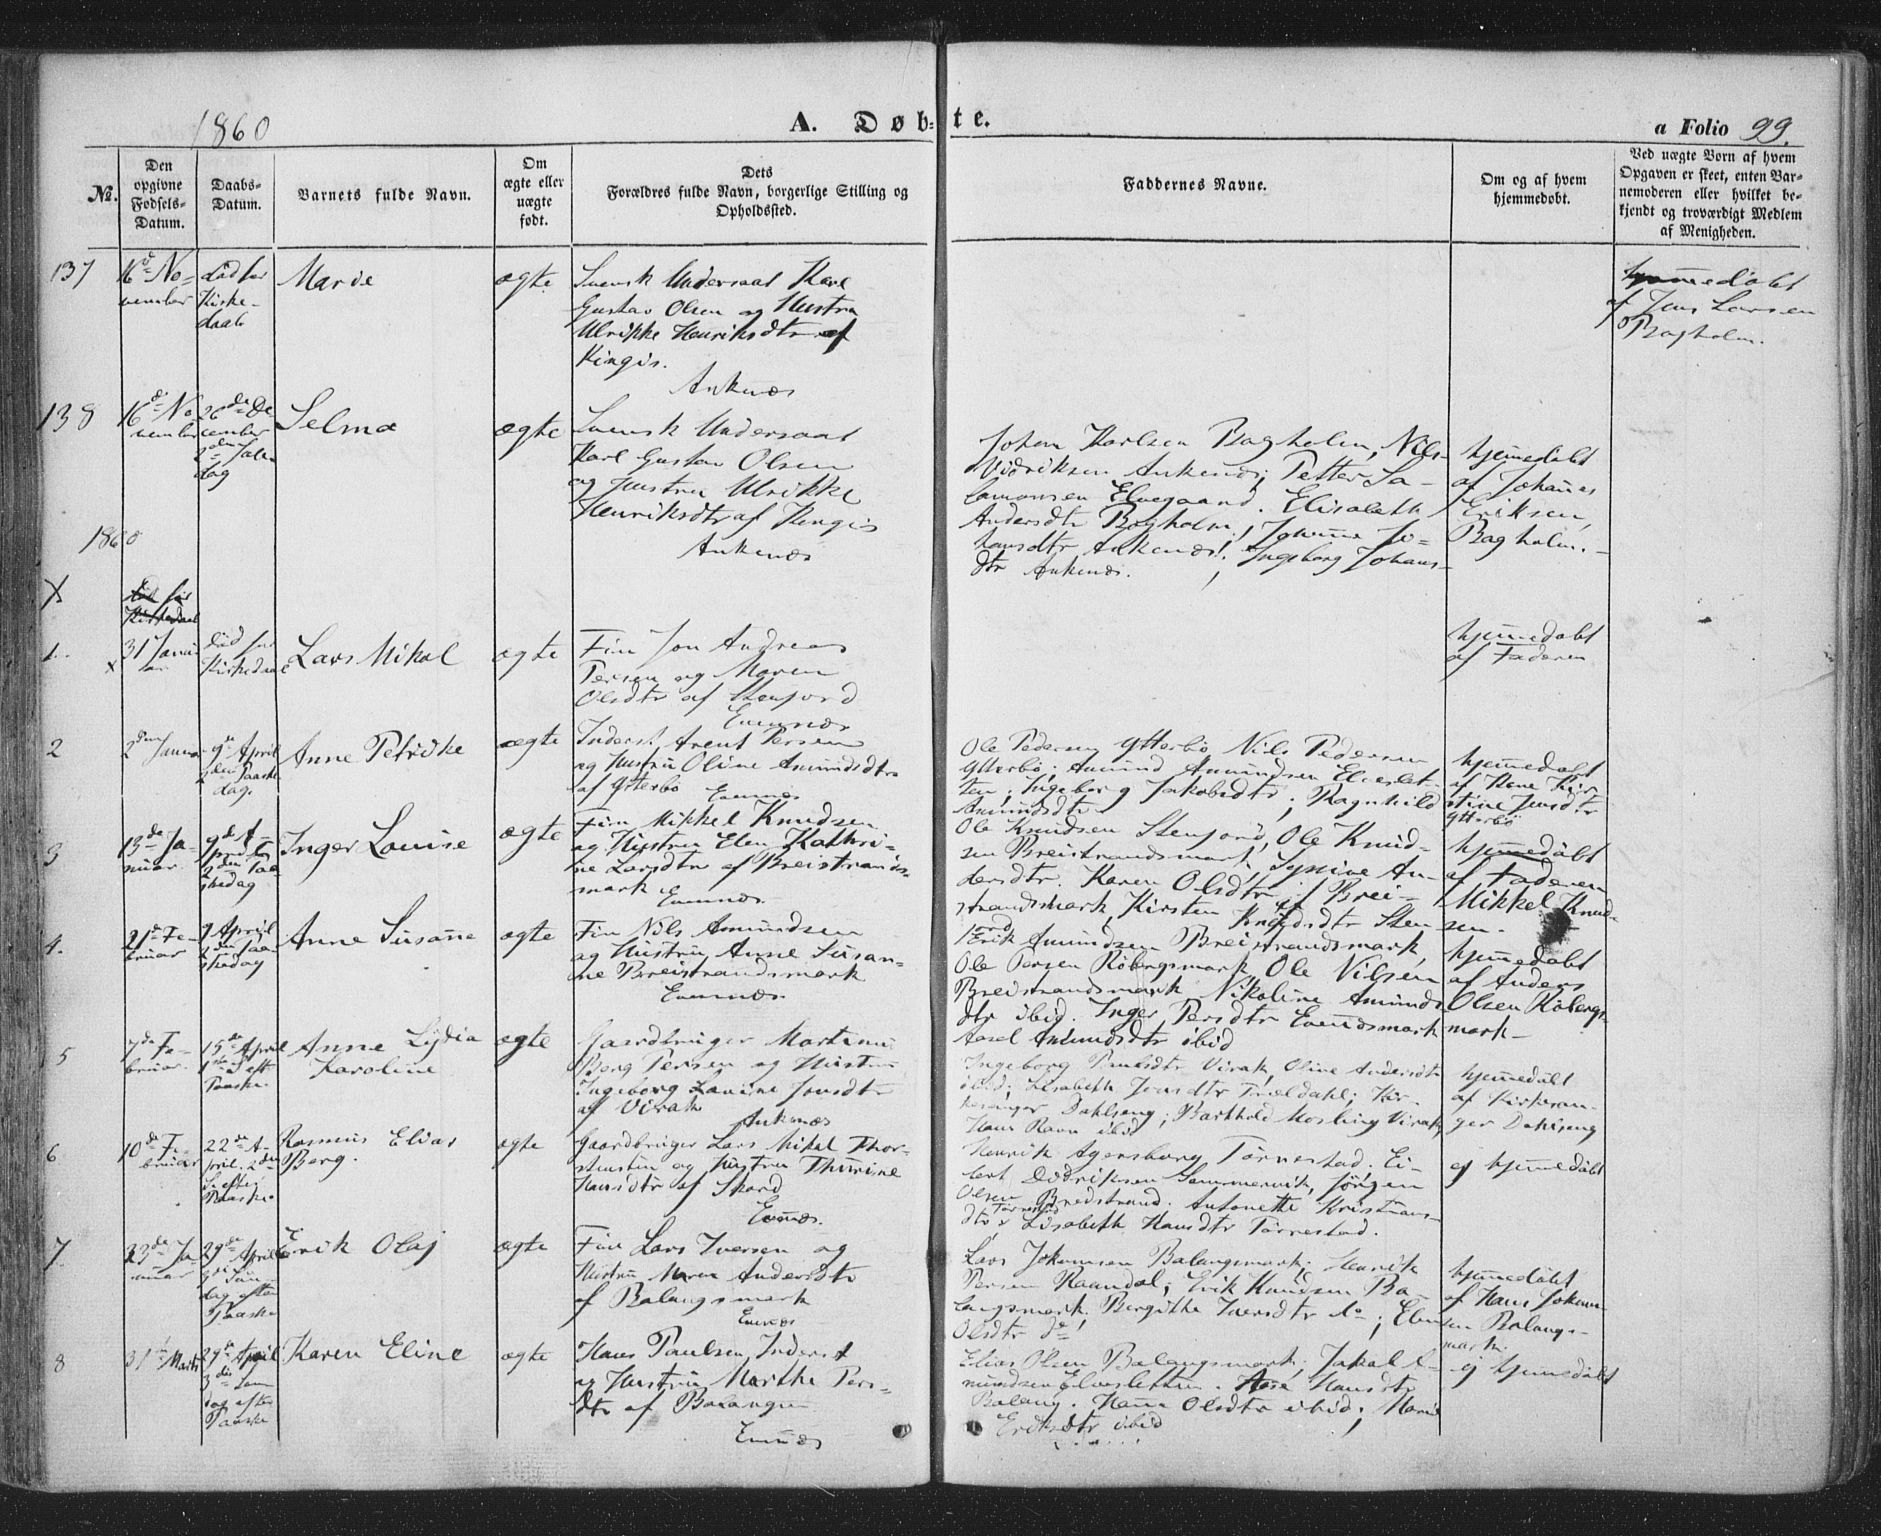 1860
A. Døb-te.
a Folio 99.
No.
Den opgivne Fødsels-Datum.
Daabs-Datum.
Barnets fulde Navn.
Om ægte eller uægte født.
Dets Forældres fulde Navn, borgerlige Stilling og Opholdssted.
Faddernes Navne.
Om og af hvem hjemmedøbt.
Ved uægte Børn af hvem Opgaven er skeet, enten Barnemoderen eller hvilket bekjendt og troværdigt Medlem af Menigheden.
137
16de No-
vember
død før
Kirke-
daab
Marie
ægte
Svensk Undersaat Karl
Gustav Olsen og Hustru
Ulrikke Henriksdtr af
Kingis.
Ankenæs
hjemmedøbt
af Jens Larsen
Bagholm.
138
16de No-
vember
26de De-
cember
2den Jule-
dag
Selma
ægte
Svensk Undersaat
Karl Gustav Olsen
og Hustru Ulrikke
Henriksdtr af Kingis
Ankenæs
Johan Karlsen Bagholm, Nils
Didriksen Ankenæs; Petter Sa-
lamonsen Elvegaard. Elisabeth
Andersdtr Bagholm; Johanne Jo-
hansdtr Ankenæs; Ingeborg Johans-
dtr Ankenæs.
hjemedøbt
af Johanes
Eriksen,
Bagholm.
1860
X
død før
Kirkedaab
1.
31 Janu-
ar
død før
Kirkedaab
Lars Mikal
ægte
Fin Jon Andreas
Persen og Maren
Olsdtr af Stenfjord
Evenæs
hjemedøbt
af Faderen
2
2den Janua
9de April
2den Paaske
dag.
Anne Petrikke
ægte
Inderst Arent Persen
og Hustru Oline Amundsdtr
af Ytterbø
Evenæs
Ole Pedersen Ytterbø, Nils Pedersen
Ytterbø; Amund Amundsen Elveslet-
ten; Ingeborg Jakobsdtr; Ragnhild
Amundsdtr
hjemedøbt
af Hane Kir-
stine Jensdtr
Ytterbø
3
13de Ja-
nuar
9de A-
pril
2den Paa-
skedag
Inger Louise
ægte
Fin Mikkel Knudsen
og Hustru Elen Kathri-
ne Larsdtr af Breistrands-
mark
Evenæs.
Ole Knudsen Stenfjord, Ole Knud-
sen Breistrandsmark, Synive An-
dersdtr. Karen Olsdtr af Brei-
strandsmark, Kirsten Knudsdtr Sten-
fjord
hjemmedøbt
af Faderen
Mikkel Knud-
sen.
4.
21de Fe-
bruar
9 April
2den Paa-
skedag
Anne Susanne
ægte
Fin Nils Amundsen
og Hustru Anne Susan-
ne Breistrandsmark
Evenæs
Erik Amundsen Breistrandsmark,
Ole Persen Røbergsmark, Ole Nilsen
Breistrandsmark Nikoline Amunds-
dtr ibid. Inger Persdtr Evenesmark
Amundsdtr ibid
hjemedøbt
af Anders
Olsen Røbergs-
mark
5
7de Fe-
bruar.
15de April
1ste S. eft
Paaske.
Anne Lydia
Karoline
ægte
Gaardbruger Martinus
Berg Persen og Hustru
Ingeborg Lavine Jonsdtr
af Virak
Ankenæs
Ingeborg Paulsdtr Virak, Oline Andersdtr
ibid; Lisabeth Jonsdtr Trældahl; Kir-
kesanger Dahlseng; Barthold Mosling Virak,
Hans Ravn ibid
hjemmedøbt
af Kirkesan-
ger Dahlseng
6
10de Fe-
bruar
22de A-
pril. 2den
S. efter
Paaske
Rasmus Elias
Berg.
ægte
Gaardbruger Lars Mikal Thor-
stensen og Hustru Thurine
Hansdtr af Skard
Evenæs.
Henrik Agersborg Tørrestad. Ei-
lert Didriksen Sommervik, Jørgen
Olsen Bredstrand. Antonette Kristians-
dtr Tørrestad Lisabeth Hansdtr Tørrestad.
ej hjemedøbt
7
23de Ja-
nuar
29de April
3die Søn-
dag efter
Paaske
Erik Olaj
ægte
Fin Lars Iversen og
Hustru Maren Andersdtr
af Balangsmark
Evenæs
Lars Johansen Balangsmark; Henrik
Persen Raandal; Erik Knudsen Ba-
langsmark. Bergithe Iversdtr do; Elen
Olsdtr do
hjemmedøbt
af Hans Johan-
sen Balangs-
mark.
8
31te Marts
29de April
3die Søn
dag efter
Paaske
Karen Eline
ægte
Hans Paulsen, Inderst
og Hustru Marthe Pers-
dtr af Balangen
Evenæs
Elias Olsen Balangsmark; Jakob A-
mundsen Elvesletten. Aase Hansdtr
Balang. Hanna Olsdtr ibid; Marie
Eriksdtr ibid
ej hjemedøbt